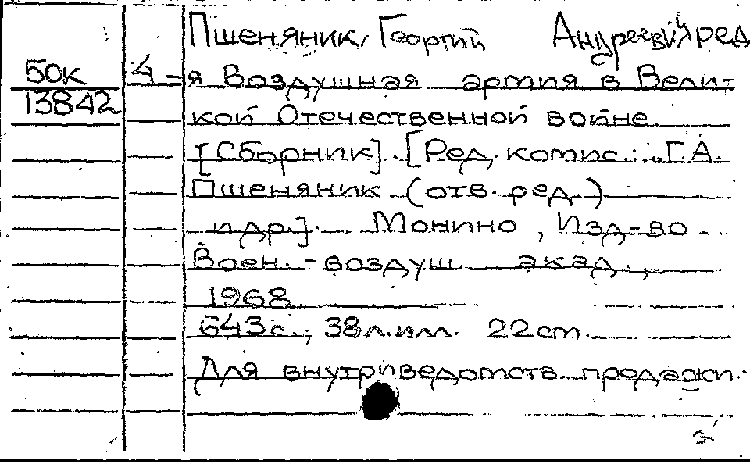 Пшеняник, Георгий Андреевич, ред
БОК 4-я Воздушная армия в Вели-
13842 кой Отечественной войне.
[Сборник]. [Ред. комис.: Г.А.
Пшеняник (отв. ред.)
и др.]. Монино, Изд-во
Воен.-воздуш. акад.,
1968
643с., 38л.илл. 22см.
Для внутриведомств. продажи.